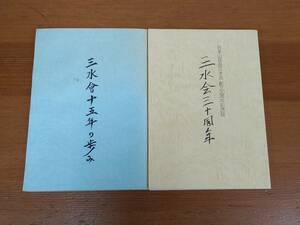 三水會十五年の歩み
三水会三十周年